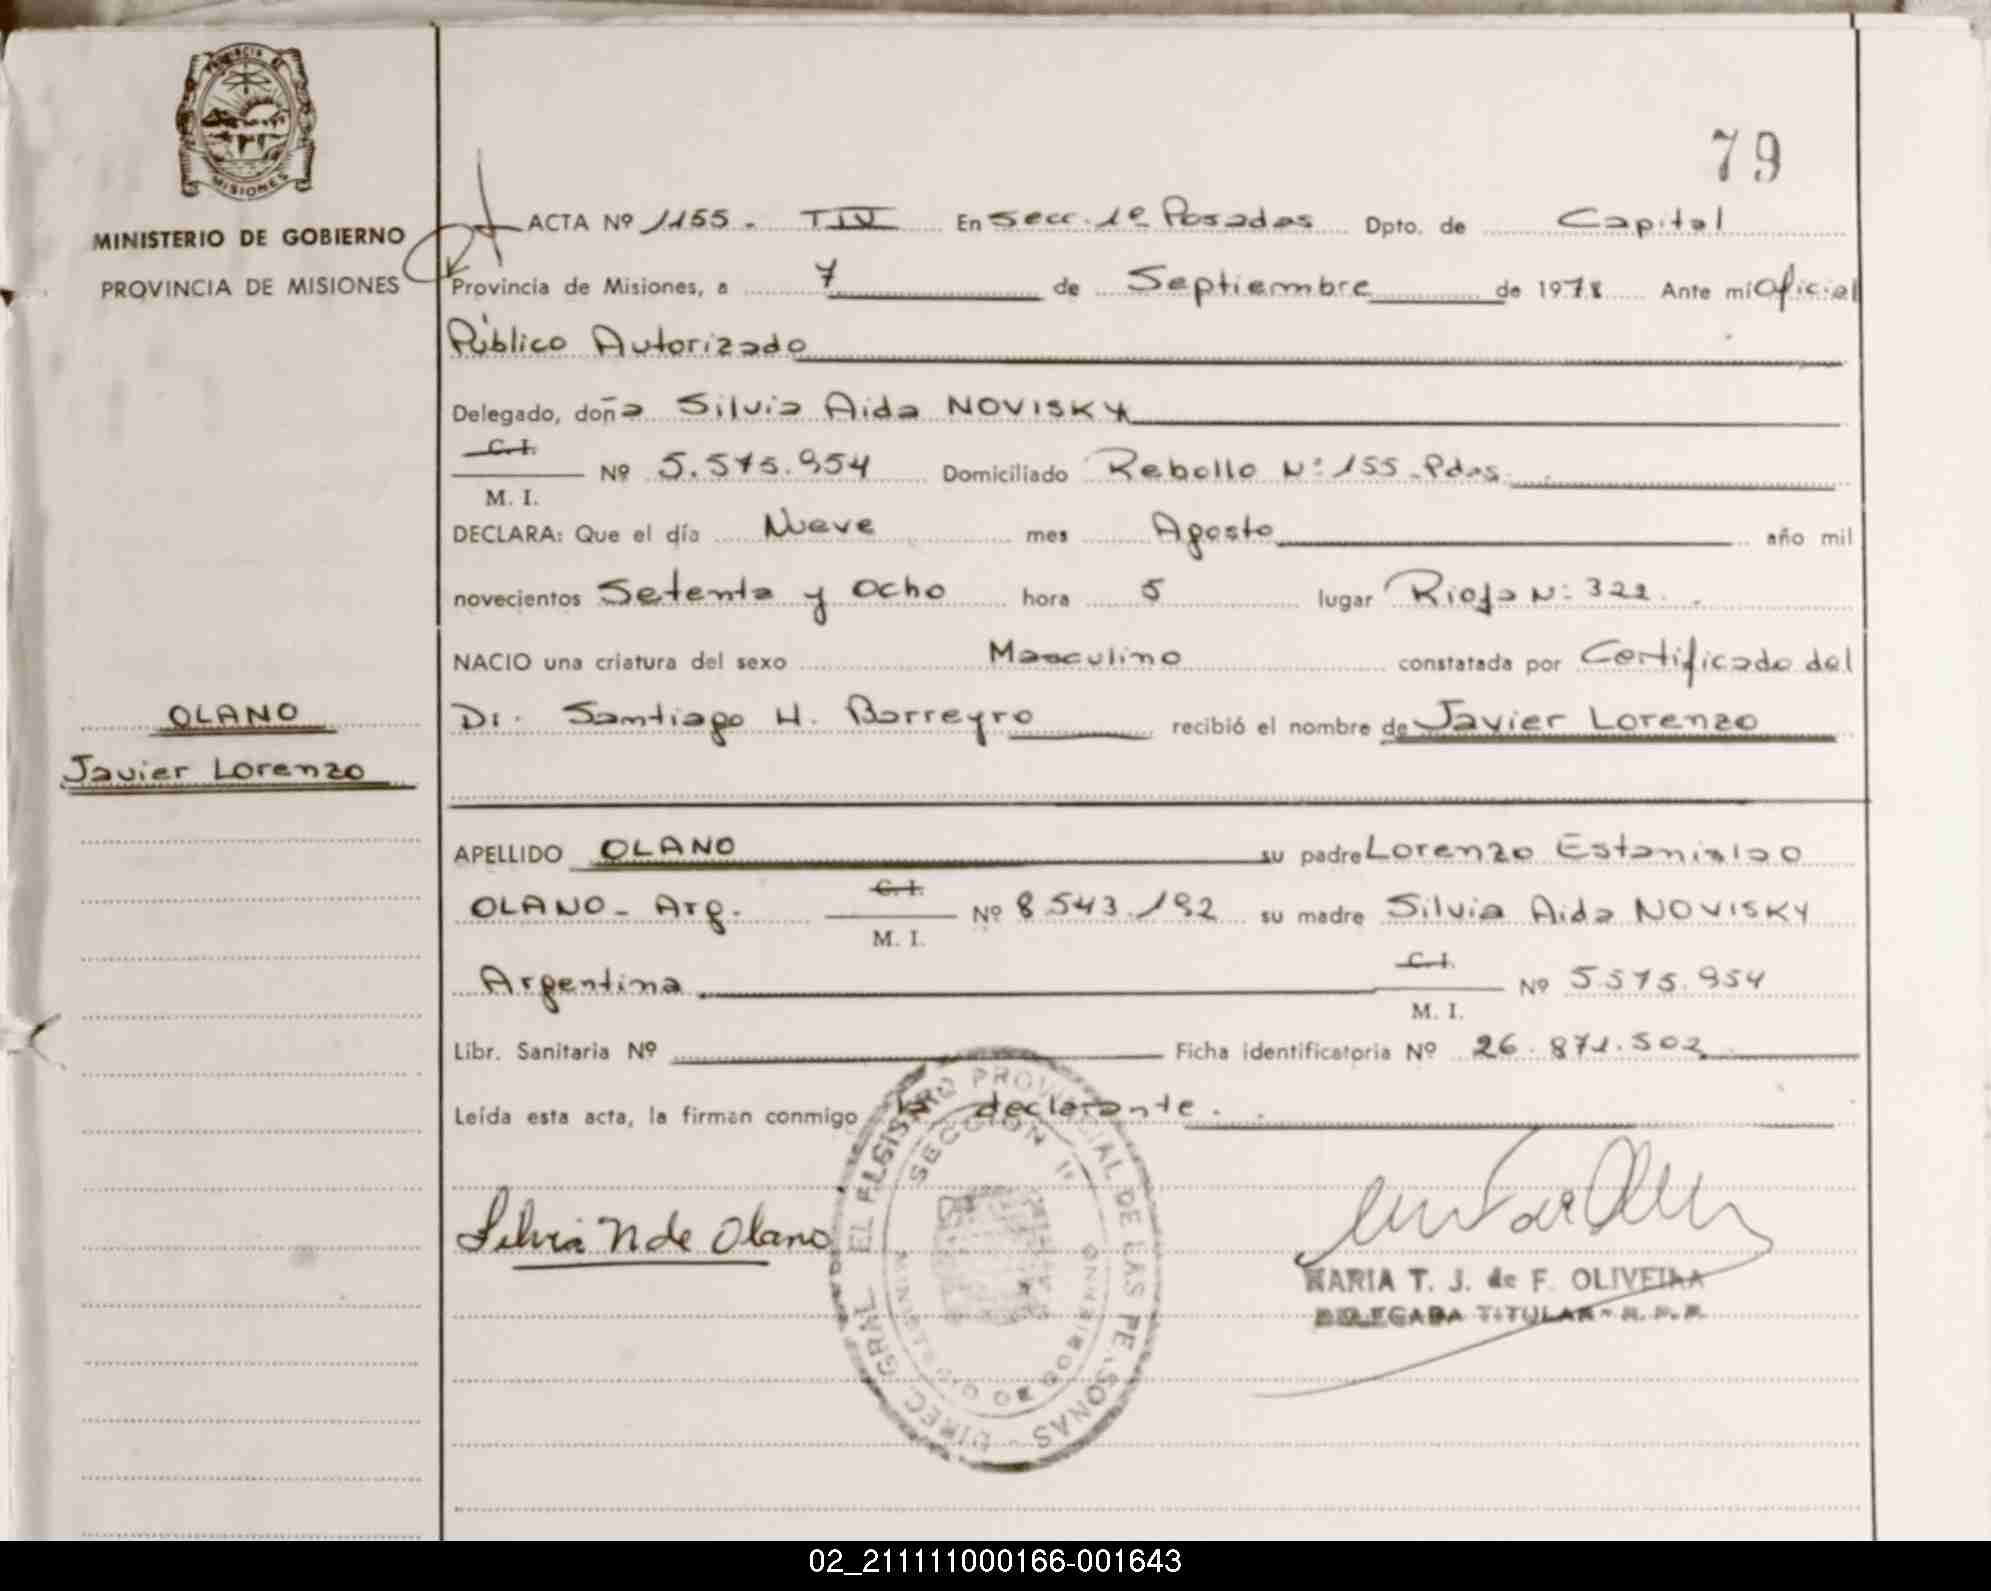 PROVINCIA DE
MISIONES
MINISTERIO DE GOBIERNO
PROVINCIA DE MISIONES
OLANO
Javier Lorenzo
79
ACTA Nº 1155. TIV En Secc. 1º Posadas Dpto. de Capital
Provincia de Misiones, a 7 de Septiembre de 1978 Ante mí Oficial
Público Autorizado
Delegado, doña Silvia Aida NOVISKY
C. I.
Nº 5.575.954 Domiciliado Rebollo Nº 155. Pdas.
M. I.
DECLARA: Que el día Nueve mes Agosto año mil
novecientos Setenta y Ocho hora 5 lugar Rioja Nº 322.
NACIO una criatura del sexo Masculino constatada por Certificado del
Dr. Santiago H. Barreyro recibió el nombre de Javier Lorenzo
APELLIDO OLANO su padre Lorenzo Estanislao
C. I.
OLANO - Arg. Nº 8.543.192 su madre Silvia Aida NOVISKY
M. I.
C. I.
Argentina Nº 5.575.954
M. I.
Libr. Sanitaria Nº Ficha identificatoria Nº 26.871.502
Leída esta acta, la firman conmigo la declarante.
Silvia N de Olano
DIREC. GRAL. EL REGISTRO PROVINCIAL DE LAS PERSONAS
SECCION 1ª
MINISTERIO DE GOBIERNO
MARIA T. J. de F. OLIVEIRA
DELEGADA TITULAR - R. P. P.
02_211111000166-001643